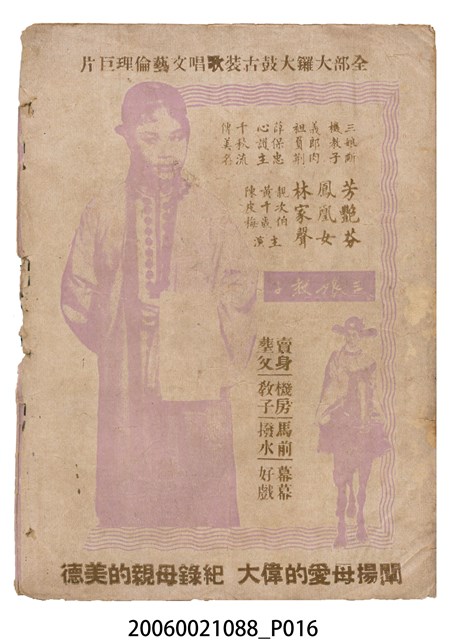 全部大鑼大鼓古裝歌唱文藝倫理巨片
三娘斷
機教子
義郎肉
袒負荆
薛保忠
心護主
千秋流
傳美名
芳艷芬
鳳凰女
林家聲
靚次伯
黃千歲
陳皮梅
主演
三娘教子
賣身
塟父
機房
教子
馬前
撥水
幕幕
好戲
闡揚母愛的偉大 紀錄母親的美德
20060021088_P016